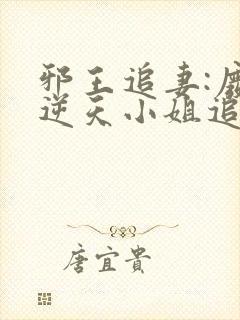 邪王追妻:废
逆天小姐追
唐宜贵